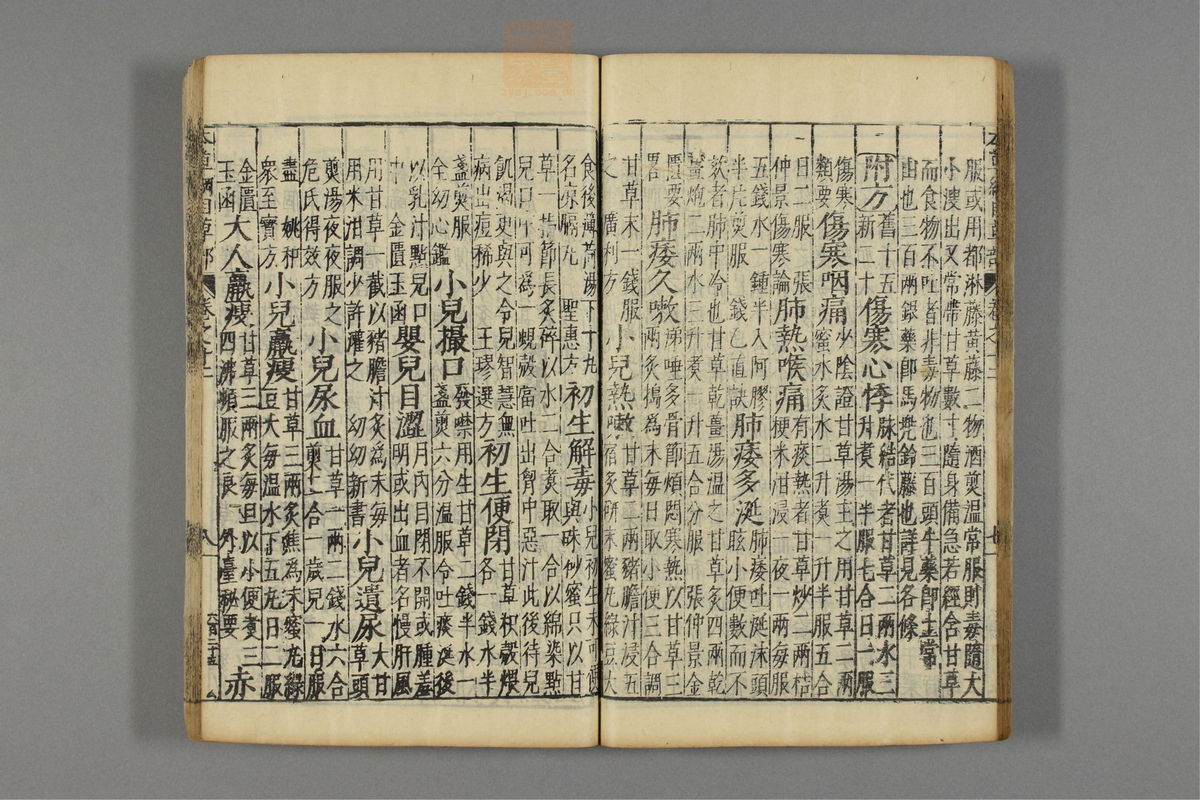 服或用都淋藤黃藤二物酒煎溫常服則毒隨大
小溲出又常帶甘草數寸隨身備急若經含甘草
而食物不吐者非毒物也三百頭牛藥即土常
山也三百兩銀藥即馬兜鈴藤也詳見各條
附方舊十五新二十傷寒心悸脉結代者甘草二兩水三升煮一半服七合日一服
傷寒類要傷寒咽痛少陰證甘草湯主之用甘草二兩蜜水炙水二升煮一升半服五合
日二服張仲景傷寒論肺熱喉痛有痰熱者甘草炒二兩桔梗米泔浸一夜一兩每服
五錢水一鍾半入阿膠半片煎服錢乙直訣肺痿多涎肺痿吐涎沫頭眩小便數而不
欬者肺中冷也甘草乾薑湯溫之甘草炙四兩乾薑炮二兩水三升煮一升五合分服張仲景金
匱要畧肺痿久嗽涕唾多骨節煩悶寒熱以甘草三兩炙搗為末每日取小便三合調
甘草末一錢服之廣利方小兒熱嗽甘草二兩豬膽汁浸五宿炙研末蜜丸綠豆大
本草綱目草部 卷之十二 七
食後薄荷湯下十丸名凉膈丸聖惠方初生解毒小兒初生未可便與硃砂蜜只以甘
草一指節長炙碎以水二合煮取一合以綿染點兒口中可為一蜆殻當吐出胷中惡汁此後待兒
飢渴更與之令兒智慧無病出痘稀少王璆選方初生便閉甘草枳殻煨各一錢水半
盞煎服全幼心鑑小兒撮口發噤用生甘草二錢半水一盞煎六分溫服令吐痰涎後
以乳汁點兒口中金匱玉函嬰兒目澀月內目閉不開或腫羞明或出血者名慢肝風
用甘草一截以猪膽汁炙為末每用米泔調少許灌之幼幼新書小兒遺尿大甘草頭
煎湯夜夜服之危氏得效方小兒尿血甘草一兩二錢水六合煎二合一歲兒一日服
盡姚和衆至寶方小兒羸瘦甘草三兩炙焦為末蜜丸綠豆大每溫水下五丸日二服
金匱玉函大人羸瘦甘草三兩炙每旦以小便煮三四沸頓服之良外臺秘要赤
本草綱目草部 卷之十二 八